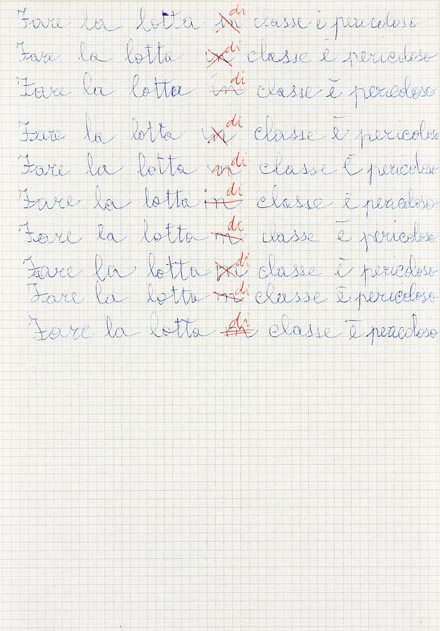 Fare la lotta in di classe è pericoloso
Fare la lotta in di classe è pericoloso
Fare la lotta in di classe è pericoloso
Fare la lotta in di classe è pericoloso
Fare la lotta in di classe è pericoloso
Fare la lotta in di classe è pericoloso
Fare la lotta in di classe è pericoloso
Fare la lotta in di classe è pericoloso
Fare la lotta in di classe è pericoloso
Fare la lotta in di classe è pericoloso